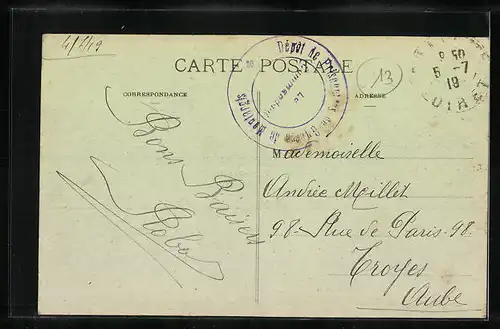 4/7/19
CARTE POSTALE
CORRESPONDANCE
ADRESSE
Dépôt de Prison
de Guerre de Montargis
13
8 50
5 - 7
19
Bons Baisers
Mademoiselle
Andrée Millet
98 - Rue de Paris - 98
Troyes
Aube